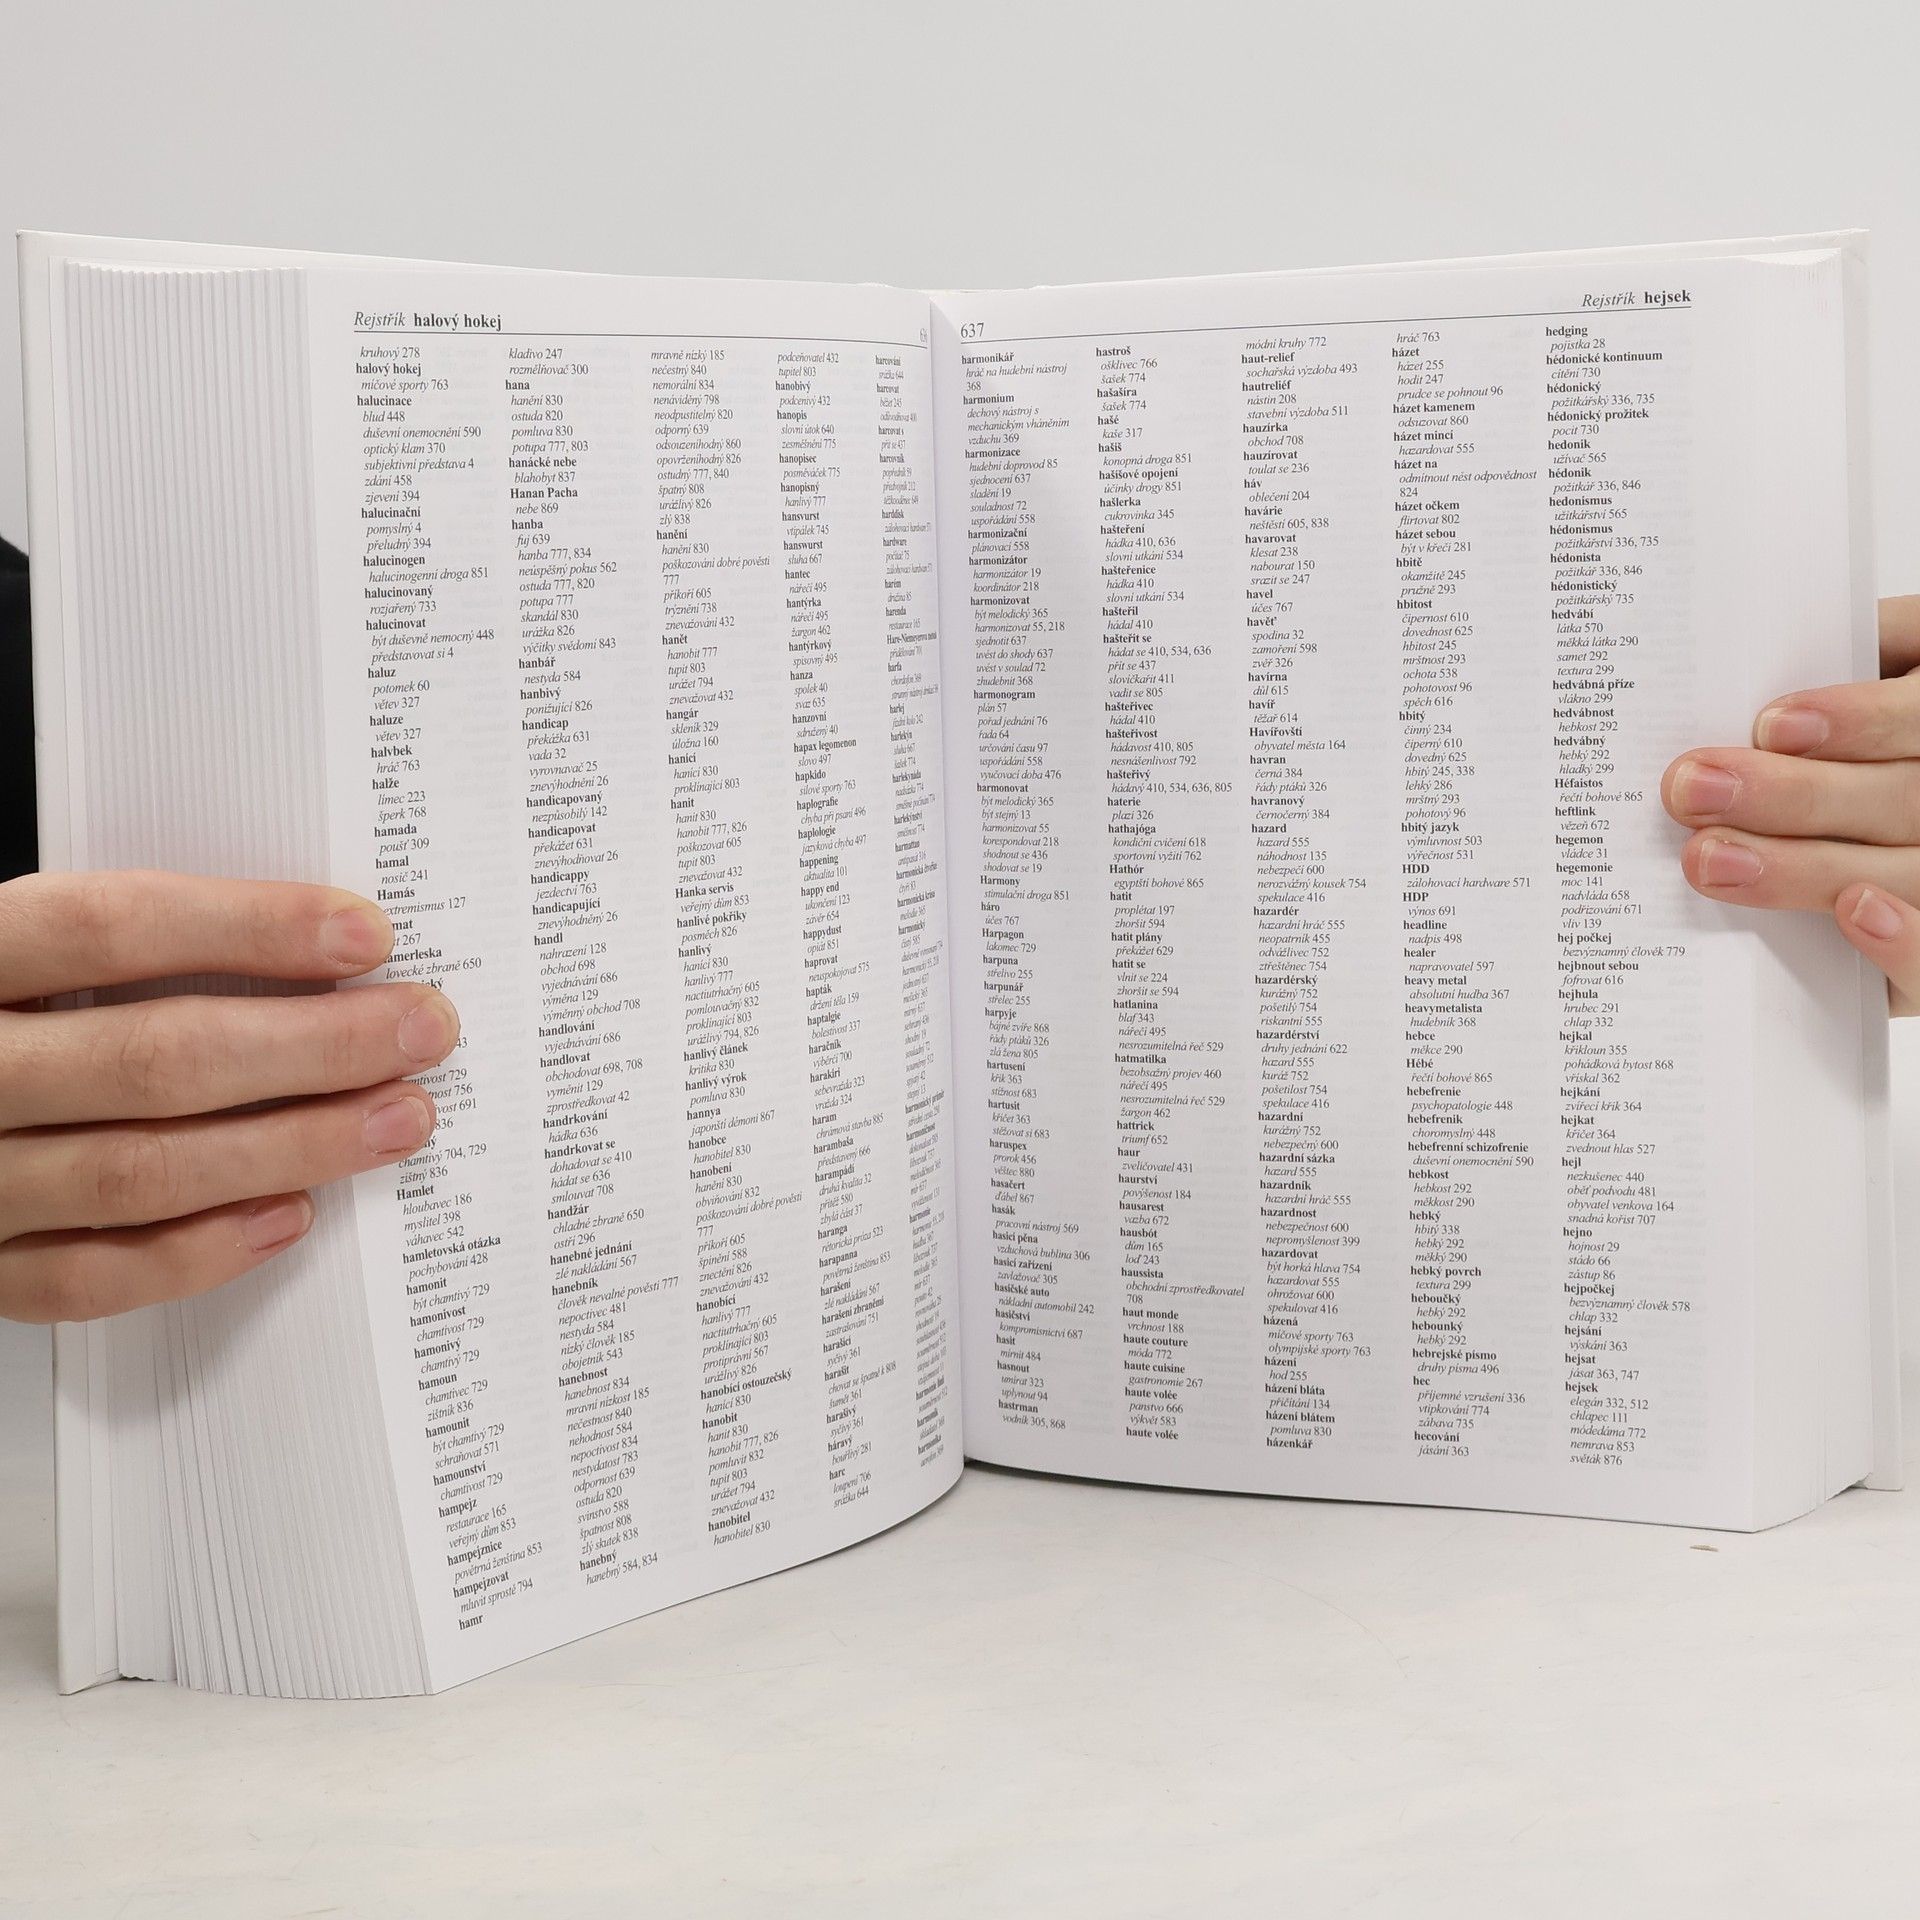 Rejstřík halový hokej
kruhový 278
halový hokej
míčové sporty 763
halucinace
blud 448
duševní onemocnění 590
optický klam 370
subjektivní představa 4
zdání 458
zjevení 394
halucinační
pomyslný 4
přeludný 394
halucinogen
halucinogenní droga 851
halucinovaný
rozjařený 733
halucinovat
být duševně nemocný 448
představovat si 4
haluz
potomek 60
větev 327
haluze
větev 327
halvbek
hráč 763
halže
límec 223
šperk 768
hamada
poušť 309
hamal
nosič 241
Hamás
extremismus 127
267
lovecké zbraně 650
chamtivý 704, 729
zištný 836
Hamlet
hloubavec 186
myslitel 398
váhavec 542
hamletovská otázka
pochybování 428
hamonit
být chamtivý 729
hamonivost
chamtivost 729
hamonivý
chamtivý 729
hamoun
chamtivec 729
zištník 836
hamounit
být chamtivý 729
schraňovat 571
hamounství
chamtivost 729
hampejz
restaurace 165
veřejný dům 853
hampejznice
povětrná ženština 853
hampejzovat
mluvit sprostě 794
hamr
kladivo 247
rozmělňovač 300
hana
hanění 830
ostuda 820
pomluva 830
potupa 777, 803
hanácké nebe
blahobyt 837
Hanan Pacha
nebe 869
hanba
fuj 639
hanba 777, 834
neúspěšný pokus 562
ostuda 777, 820
potupa 777
skandál 830
urážka 826
výčitky svědomí 843
hanbář
nestyda 584
hanbivý
ponižující 826
handicap
překážka 631
vada 32
vyrovnavač 25
znevýhodnění 26
handicapovaný
nezpůsobilý 142
handicapovat
překážet 631
znevýhodňovat 26
handicappy
jezdectví 763
handicapující
znevýhodněný 26
handl
nahrazení 128
obchod 698
vyjednávání 686
výměna 129
výměnný obchod 708
handlování
vyjednávání 686
handlovat
obchodovat 698, 708
vyměnit 129
zprostředkovat 42
handrkování
hádka 636
handrkovat se
dohadovat se 410
hádat se 636
smlouvat 708
handžár
chladné zbraně 650
ostří 296
hanebné jednání
zlé nakládání 567
hanebník
člověk nevalné pověsti 777
nepoctivec 481
nestyda 584
nízký člověk 185
obojetník 543
hanebnost
hanebnost 834
mravní nízkost 185
nečestnost 840
nehodnost 584
nepoctivost 834
nestydatost 783
odpornost 639
ostuda 820
svinstvo 588
špatnost 808
zlý skutek 838
hanebný
hanebný 584, 834
mravně nízký 185
nečestný 840
nemorální 834
nenáviděný 798
neodpustitelný 820
odporný 639
odsouzeníhodný 860
opovrženíhodný 826
ostudný 777, 840
špatný 808
urážlivý 826
zlý 838
hanění
hanění 830
poškozování dobré pověsti
777
příkoří 605
trýznění 738
znevažování 432
hanět
hanobit 777
tupit 803
urážet 794
znevažovat 432
hangár
skleník 329
úložna 160
hanící
hanící 830
proklínající 803
hanit
hanit 830
hanobit 777, 826
poškozovat 605
tupit 803
znevažovat 432
Hanka servis
veřejný dům 853
hanlivé pokřiky
posměch 826
hanlivý
hanící 830
hanlivý 777
nactiutrhačný 605
pomlouvačný 832
proklínající 803
urážlivý 794, 826
hanlivý článek
kritika 830
hanlivý výrok
pomluva 830
hannya
japonští démoni 867
hanobce
hanobitel 830
hanobení
hanění 830
obviňování 832
poškozování dobré pověsti
777
příkoří 605
špinění 588
znectění 826
znevažování 432
hanobící
hanlivý 777
nactiutrhačný 605
proklínající 803
protiprávní 567
urážlivý 826
hanobící ostouzečský
hanící 830
hanobit
hanit 830
hanobit 777, 826
pomluvit 832
tupit 803
urážet 794
znevažovat 432
hanobitel
hanobitel 830
podceňovatel 432
tupitel 803
hanobivý
podcenivý 432
hanopis
slovní útok 640
zesměšnění 775
hanopisec
posměváček 775
hanopisný
hanlivý 777
hansvurst
vtipálek 745
hanswurst
sluha 667
hantec
nářečí 495
hantýrka
nářečí 495
žargon 462
hantýrkový
spisovný 495
hanza
spolek 40
svaz 635
hanzovní
sdružený 40
hapax legomenon
slovo 497
hapkido
silové sporty 763
haplografie
chyba při psaní 496
haplologie
jazyková chyba 497
happening
aktualita 101
happy end
ukončení 123
závěr 654
happydust
opiát 851
haprovat
neuspokojovat 575
hapták
držení těla 159
haptalgie
bolestivost 337
haračník
výběrčí 700
harakiri
sebevražda 323
vražda 324
haram
chrámová stavba 885
harambaša
představený 666
harampádí
druhá kvalita 32
přítěž 580
zbylá část 37
haranga
rétorická próza 523
harapanna
povětrná ženština 853
harašení
zlé nakládání 567
harašení zbraněmi
zastrašování 751
harašící
syčivý 361
harašit
chovat se špatně k 808
šumět 361
harašivý
syčivý 361
háravý
bouřlivý 281
harc
loupení 706
srážka 644
harcování
srážka 644
harcovat
běžet 245
harcovat s
přít se 437
harcovník
harddisk
hardware
harém
družina 85
harenda
restaurace 165
harfa
637
Rejstřík hejsek
harmonikář
hráč na hudební nástroj
368
harmonium
dechový nástroj s
mechanickým vháněním
vzduchu 369
harmonizace
hudební doprovod 85
sjednocení 637
sladění 19
souladnost 72
uspořádání 558
harmonizační
plánovací 558
harmonizátor
harmonizátor 19
koordinátor 218
harmonizovat
být melodický 365
harmonizovat 55, 218
sjednotit 637
uvést do shody 637
uvést v soulad 72
zhudebnit 368
harmonogram
plán 57
pořad jednání 76
řada 64
určování času 97
uspořádání 558
vyučovací doba 476
harmonovat
být melodický 365
být stejný 13
harmonizovat 55
korespondovat 218
shodnout se 436
shodovat se 19
Harmony
stimulační droga 851
háro
účes 767
Harpagon
lakomec 729
harpuna
střelivo 255
harpunář
střelec 255
harpyje
bájné zvíře 868
řády ptáků 326
zlá žena 805
hartusení
křik 363
stížnost 683
hartusit
křičet 363
stěžovat si 683
haruspex
prorok 456
věštec 880
hasačert
ďábel 867
hasák
pracovní nástroj 569
hasicí pěna
vzduchová bublina 306
hasicí zařízení
zavlažovač 305
hasičské auto
nákladní automobil 242
hasičství
kompromisnictví 687
hasit
mírnit 484
hasnout
umírat 323
uplynout 94
hastrman
vodník 305, 868
hastroš
ošklivec 766
šašek 774
hašašíra
šašek 774
hašé
kaše 317
hašiš
konopná droga 851
hašišové opojení
účinky drogy 851
hašlerka
cukrovinka 345
hašteření
hádka 410, 636
slovní utkání 534
hašteřenice
hádka 410
slovní utkání 534
hašteřil
hádal 410
hašteřit se
hádat se 410, 534, 636
přít se 437
slovíčkařit 411
vadit se 805
hašteřivec
hádal 410
hašteřivost
hádavost 410, 805
nesnášenlivost 792
hašteřivý
hádavý 410, 534, 636, 805
haterie
plazi 326
hathajóga
kondiční cvičení 618
sportovní vyžití 762
Hathór
egyptští bohové 865
hatit
proplétat 197
zhoršit 594
hatit plány
překážet 629
hatit se
vlnit se 224
zhoršit se 594
hatlanina
blaf 343
nářečí 495
nesrozumitelná řeč 529
hatmatilka
bezobsažný projev 460
nářečí 495
nesrozumitelná řeč 529
žargon 462
hattrick
triumf 652
haur
zveličovatel 431
haurství
povýšenost 184
hausarest
vazba 672
hausbót
dům 165
loď 243
haussista
obchodní zprostředkovatel
708
haut monde
vrchnost 188
haute couture
móda 772
haute cuisine
gastronomie 267
haute volée
panstvo 666
výkvět 583
haute volée
módní kruhy 772
haut-relief
sochařská výzdoba 493
hautreliéf
nástin 208
stavební výzdoba 511
hauzírka
obchod 708
hauzírovat
toulat se 236
háv
oblečení 204
havárie
neštěstí 605, 838
havarovat
klesat 238
nabourat 150
srazit se 247
havel
účes 767
havěť
spodina 32
zamoření 598
zvěř 326
havírna
důl 615
havíř
těžař 614
Havířovští
obyvatel města 164
havran
černá 384
řády ptáků 326
havranový
černočerný 384
hazard
hazard 555
náhodnost 135
nebezpečí 600
nerozvážný kousek 754
spekulace 416
hazardér
hazardní hráč 555
neopatrník 455
odvážlivec 752
ztřeštěnec 754
hazardérský
kurážný 752
pošetilý 754
riskantní 555
hazardérství
druhy jednání 622
hazard 555
kuráž 752
pošetilost 754
spekulace 416
hazardní
kurážný 752
nebezpečný 600
hazardní sázka
hazard 555
hazardník
hazardní hráč 555
hazardnost
nebezpečnost 600
nepromyšlenost 399
hazardovat
být horká hlava 754
hazardovat 555
ohrožovat 600
spekulovat 416
házená
míčové sporty 763
olympijské sporty 763
házení
hod 255
házení bláta
příčítání 134
házení blátem
pomluva 830
házenkář
hráč 763
házet
házet 255
hodit 247
prudce se pohnout 96
házet kamenem
odsuzovat 860
házet mincí
hazardovat 555
házet na
odmítnout nést odpovědnost
824
házet očkem
flirtovat 802
házet sebou
být v křeči 281
hbitě
okamžitě 245
pružně 293
hbitost
čipernost 610
dovednost 625
hbitost 245
mrštnost 293
ochota 538
pohotovost 96
spěch 616
hbitý
činný 234
čiperný 610
dovedný 625
hbitý 245, 338
lehký 286
mrštný 293
pohotový 96
hbitý jazyk
výmluvnost 503
výřečnost 531
HDD
zálohovací hardware 571
HDP
výnos 691
headline
nadpis 498
healer
napravovatel 597
heavy metal
absolutní hudba 367
heavymetalista
hudebník 368
hebce
měkce 290
Hébé
řečtí bohové 865
hebefrenie
psychopatologie 448
hebefrenik
choromyslný 448
hebefrenní schizofrenie
duševní onemocnění 590
hebkost
hebkost 292
měkkost 290
hebký
hbitý 338
hebký 292
měkký 290
hebký povrch
textura 299
heboučký
hebký 292
hebounký
hebký 292
hebrejské písmo
druhy písma 496
hec
příjemné vzrušení 336
vtipkování 774
zábava 735
hecování
jásání 363
hedging
pojistka 28
hédonické kontinuum
cítění 730
hédonický
požitkářský 336, 735
hédonický prožitek
pocit 730
hedonik
uživač 565
hédonik
požitkář 336, 846
hedonismus
užitkářství 565
hédonismus
požitkářství 336, 735
hédonista
požitkář 336, 846
hédonistický
požitkářský 735
hedvábí
látka 570
měkká látka 290
samet 292
textura 299
hedvábná příze
vlákno 299
hedvábnost
hebkost 292
hedvábný
hebký 292
hladký 299
Héfaistos
řečtí bohové 865
heftlink
vězeň 672
hegemon
vládce 31
hegemonie
moc 141
nadvláda 658
podřizování 671
vliv 139
hej počkej
bezvýznamný člověk 779
hejbnout sebou
fofrovat 616
hejhula
hrubec 291
chlap 332
hejkal
křikloun 355
pohádková bytost 868
vřískal 362
hejkání
zvířecí křik 364
hejkat
křičet 364
zvednout hlas 527
hejl
nezkušenec 440
oběť podvodu 481
obyvatel venkova 164
snadná kořist 707
hejno
hojnost 29
stádo 66
zástup 86
hejpočkej
bezvýznamný člověk 578
chlap 332
hejsání
výskání 363
hejsat
jásat 363, 747
hejsek
elegán 332, 512
chlapec 111
módedáma 772
nemrava 853
světák 876